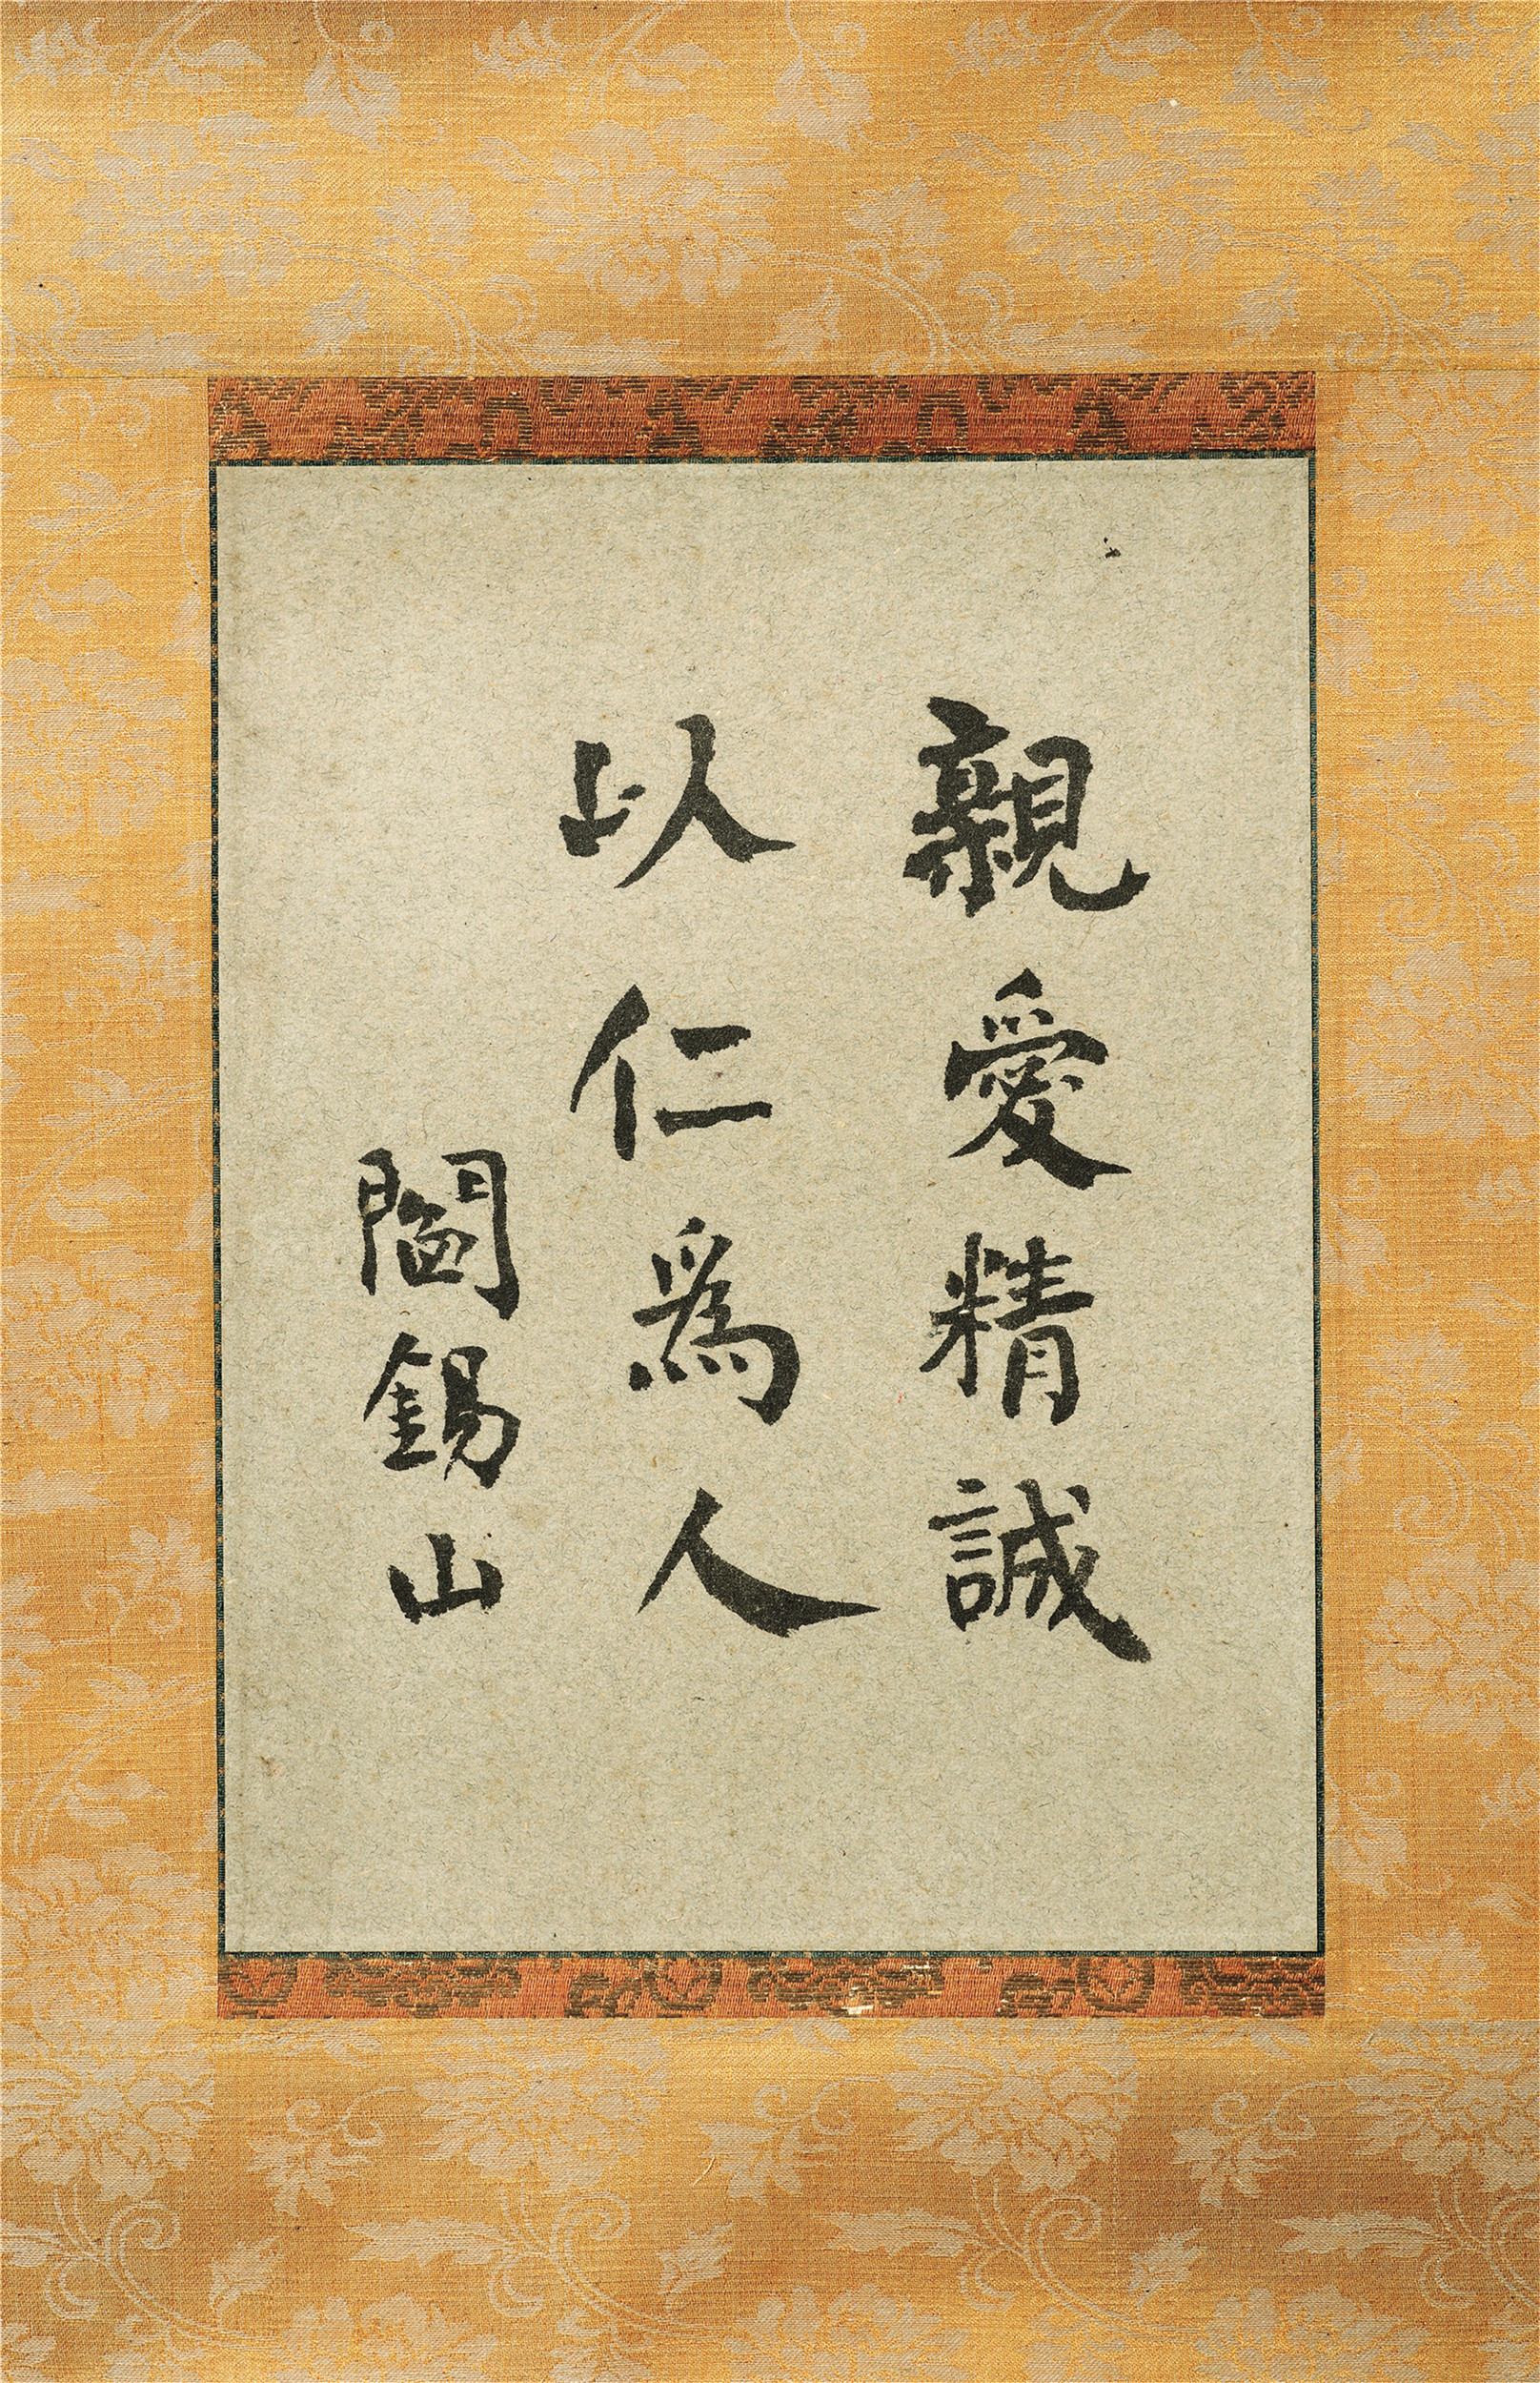 親愛精誠
以仁爲人
閻錫山